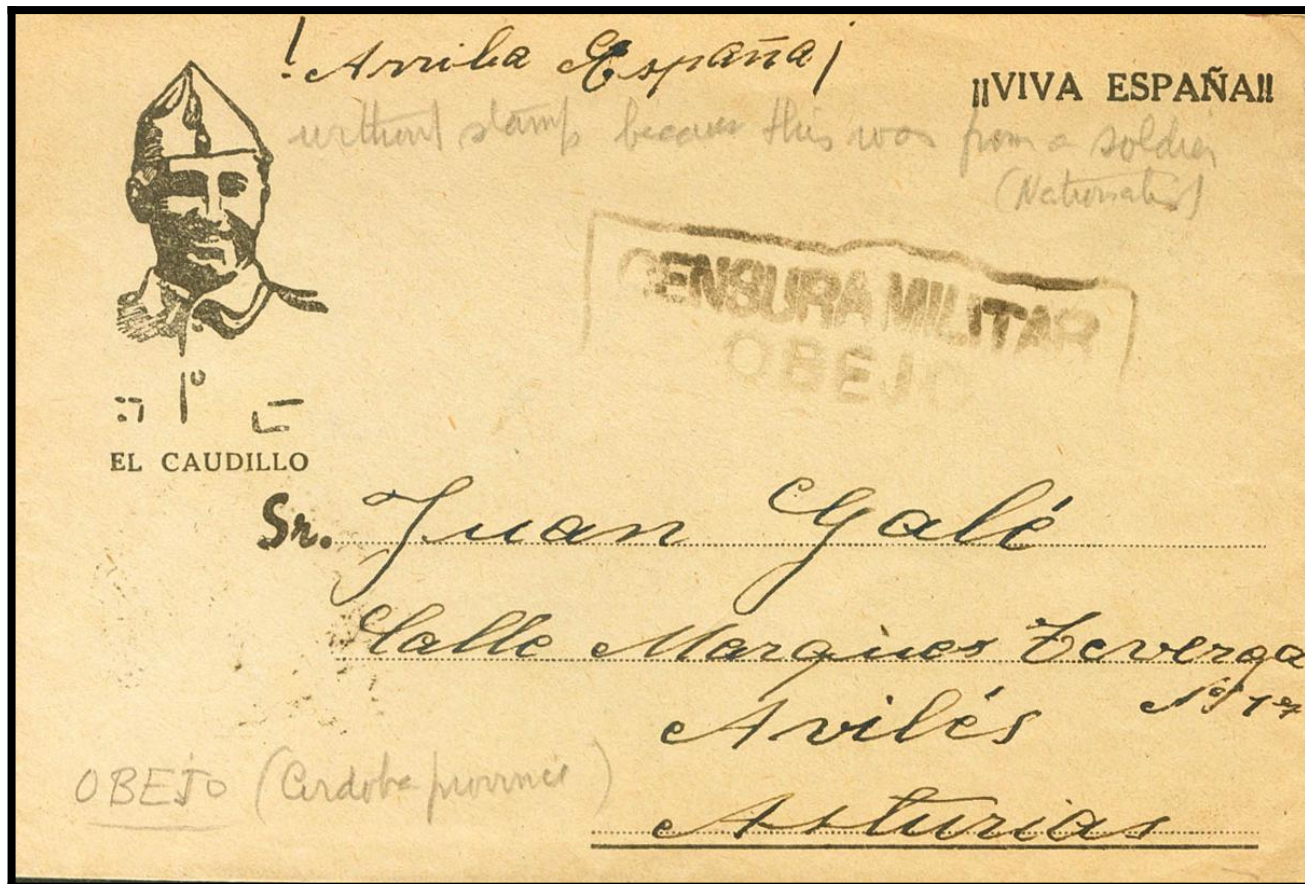 ! Arriba España ¡
¡¡VIVA ESPAÑA!!
without stamp because this was from a soldier
(Nationalist)
CENSURA MILITAR
OBEJO
EL CAUDILLO
Sr. Juan Galé
Calle Marques Teverga
Nº 17
Avilés
Asturias
OBEJO (Cordoba province)